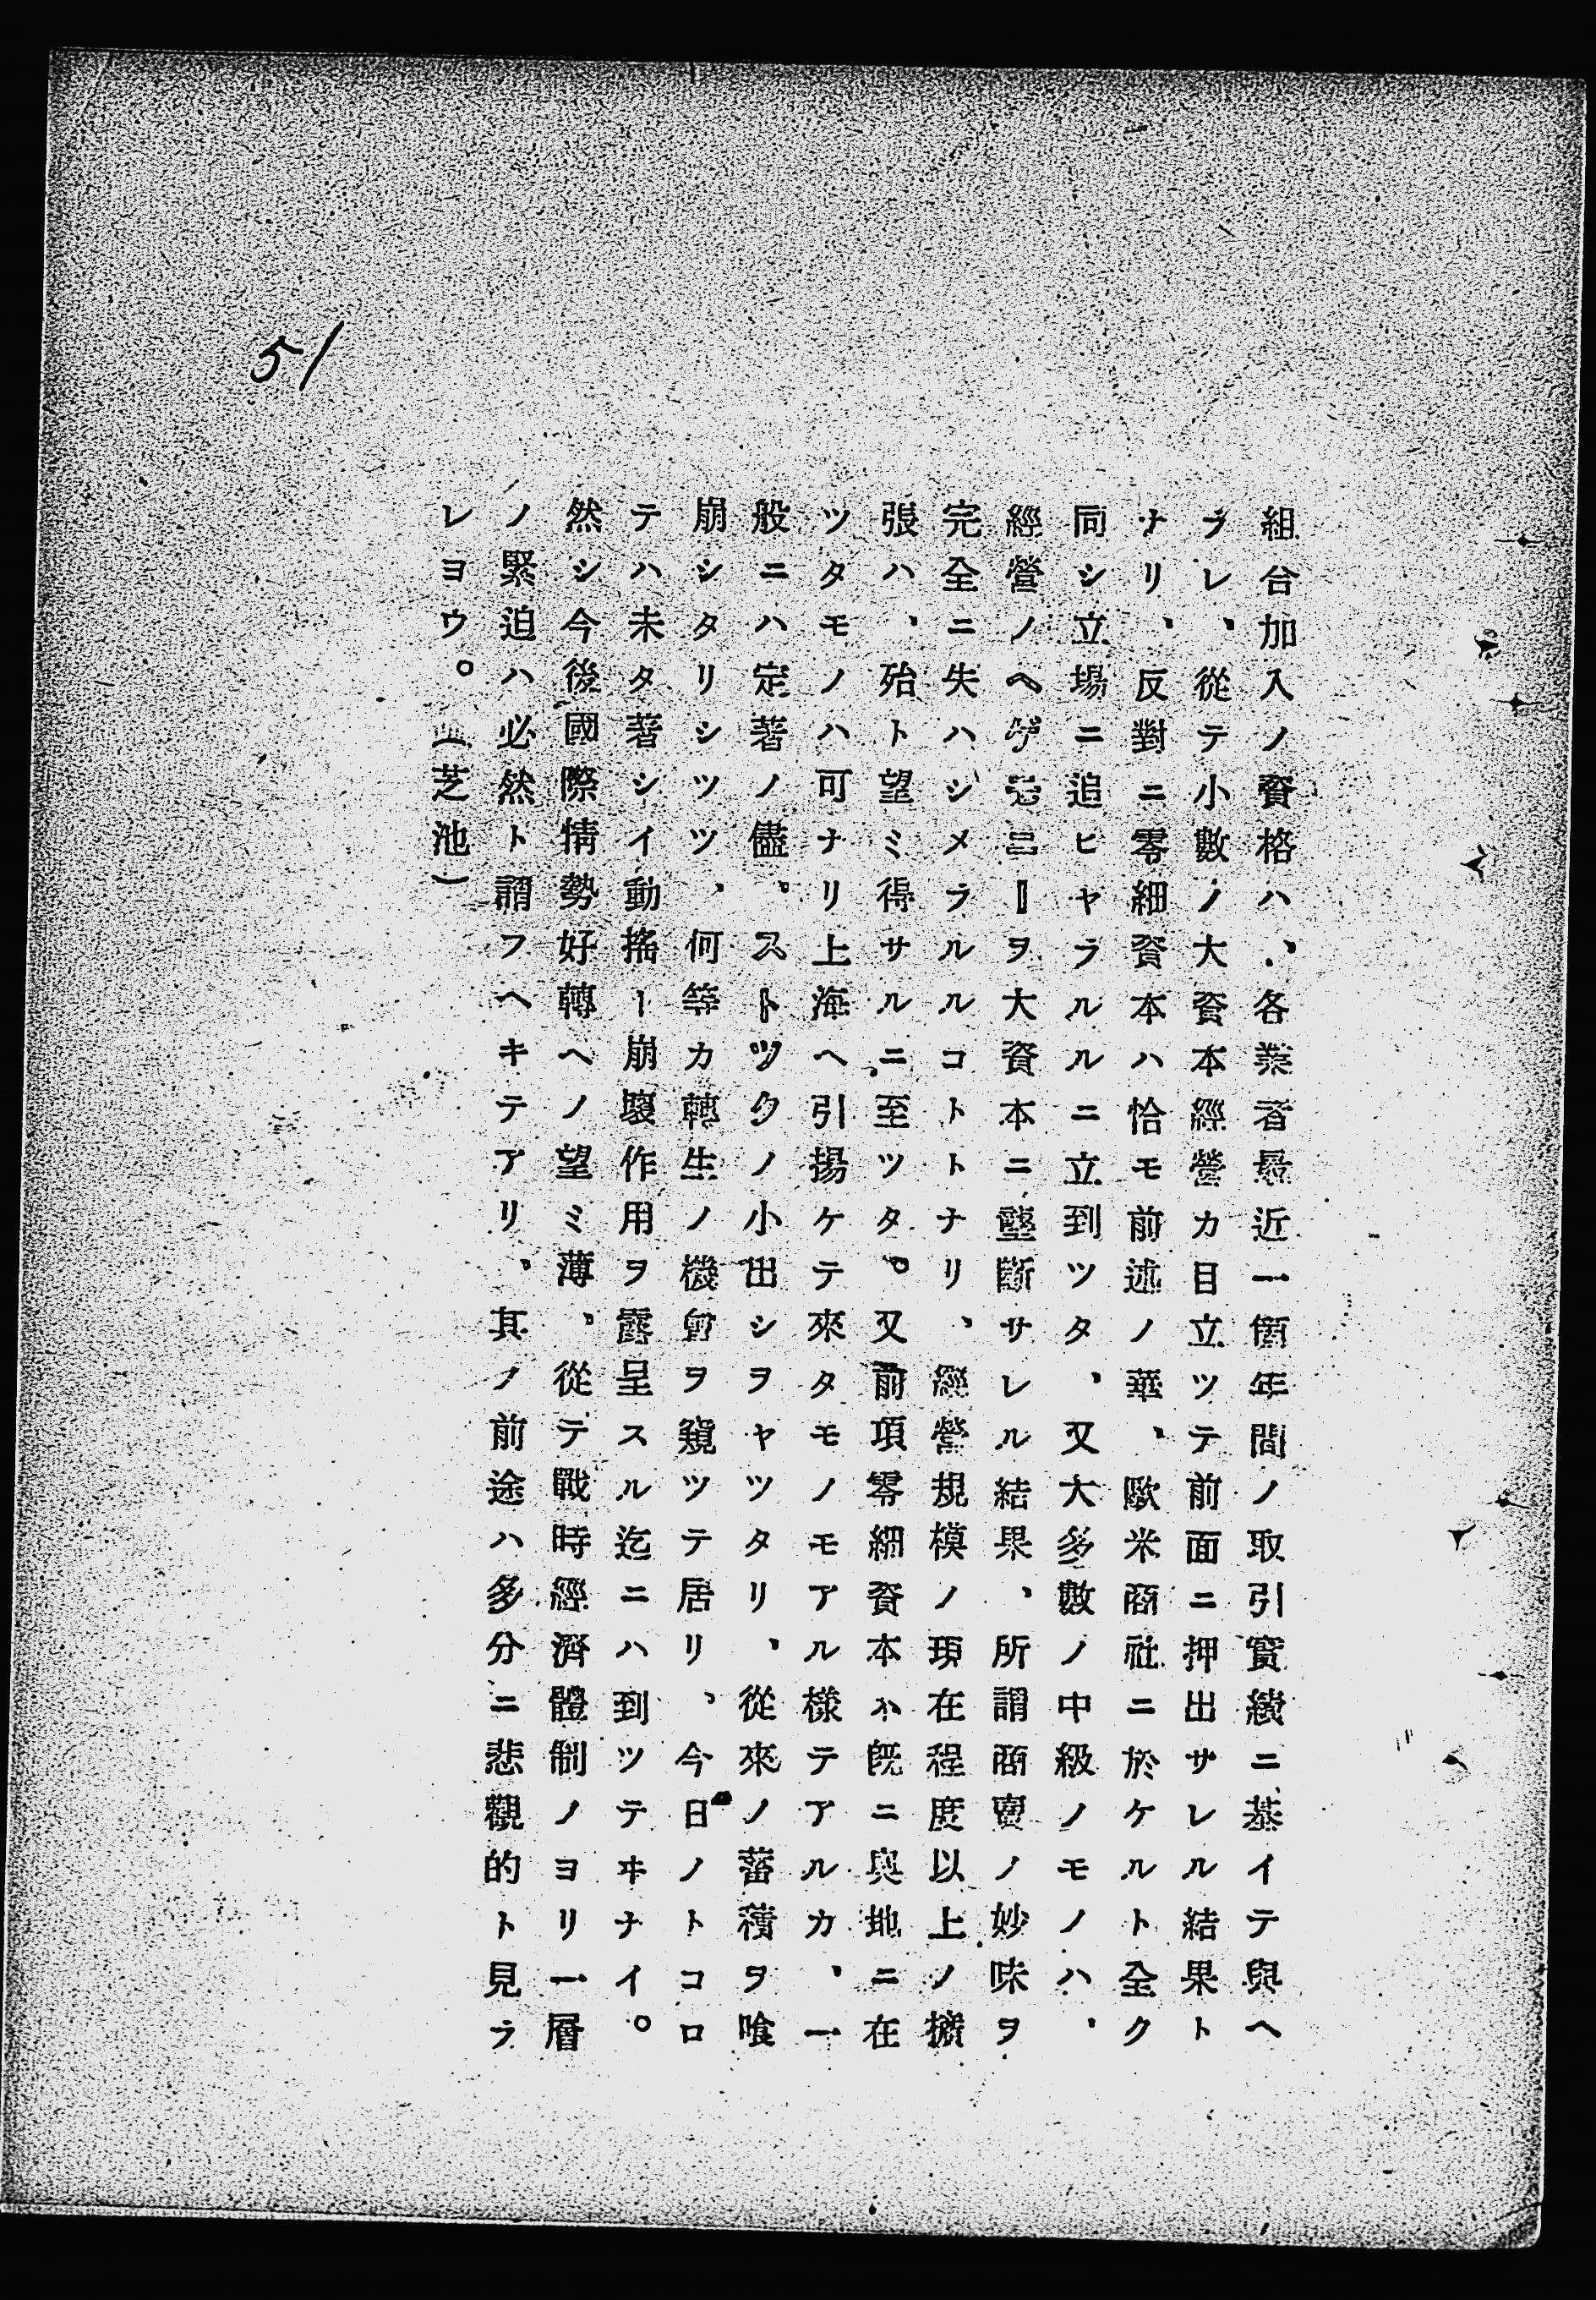 組合加入ノ資格ハ、各業者最近一個年間ノ取引實績ニ基イテ與ヘ
ラレ、從テ小數ノ大資本經營カ目立ツテ前面ニ押出サレル結果ト
ナリ、反對ニ零細資本ハ恰モ前述ノ華、歐米商社ニ於ケルト全ク
同シ立場ニ追ヒヤラルルニ立到ツタ、又大多數ノ中級ノモノハ、
經營ノヘ ヲ大資本ニ壟斷サレル結果、所謂商賣ノ妙味ヲ
完全ニ失ハシメラルルコトトナリ、經營規模ノ現在程度以上ノ擴
張ハ、殆ト望ミ得サルニ至ツタ。又前項零細資本ハ既ニ奧地ニ在
ツタモノハ可ナリ上海ヘ引揚ケテ來タモノモアル樣テアルカ、一
般ニハ定著ノ儘、ストツクノ小出シヲヤツタリ、從來ノ蓄積ヲ喰
崩シタリシツツ、何等カ轉生ノ機會ヲ窺ツテ居リ、今日ノトコロ
テハ未タ著シイ動搖ー崩壞作用ヲ露呈スル迄ニハ到ツテヰナイ。
然シ今後國際情勢好轉ヘノ望ミ薄、從テ戰時經濟體制ノヨリ一層
ノ緊迫ハ必然ト謂フヘキテアリ、其ノ前途ハ多分ニ悲觀的ト見ラ
レヨウ。(芝池)
51